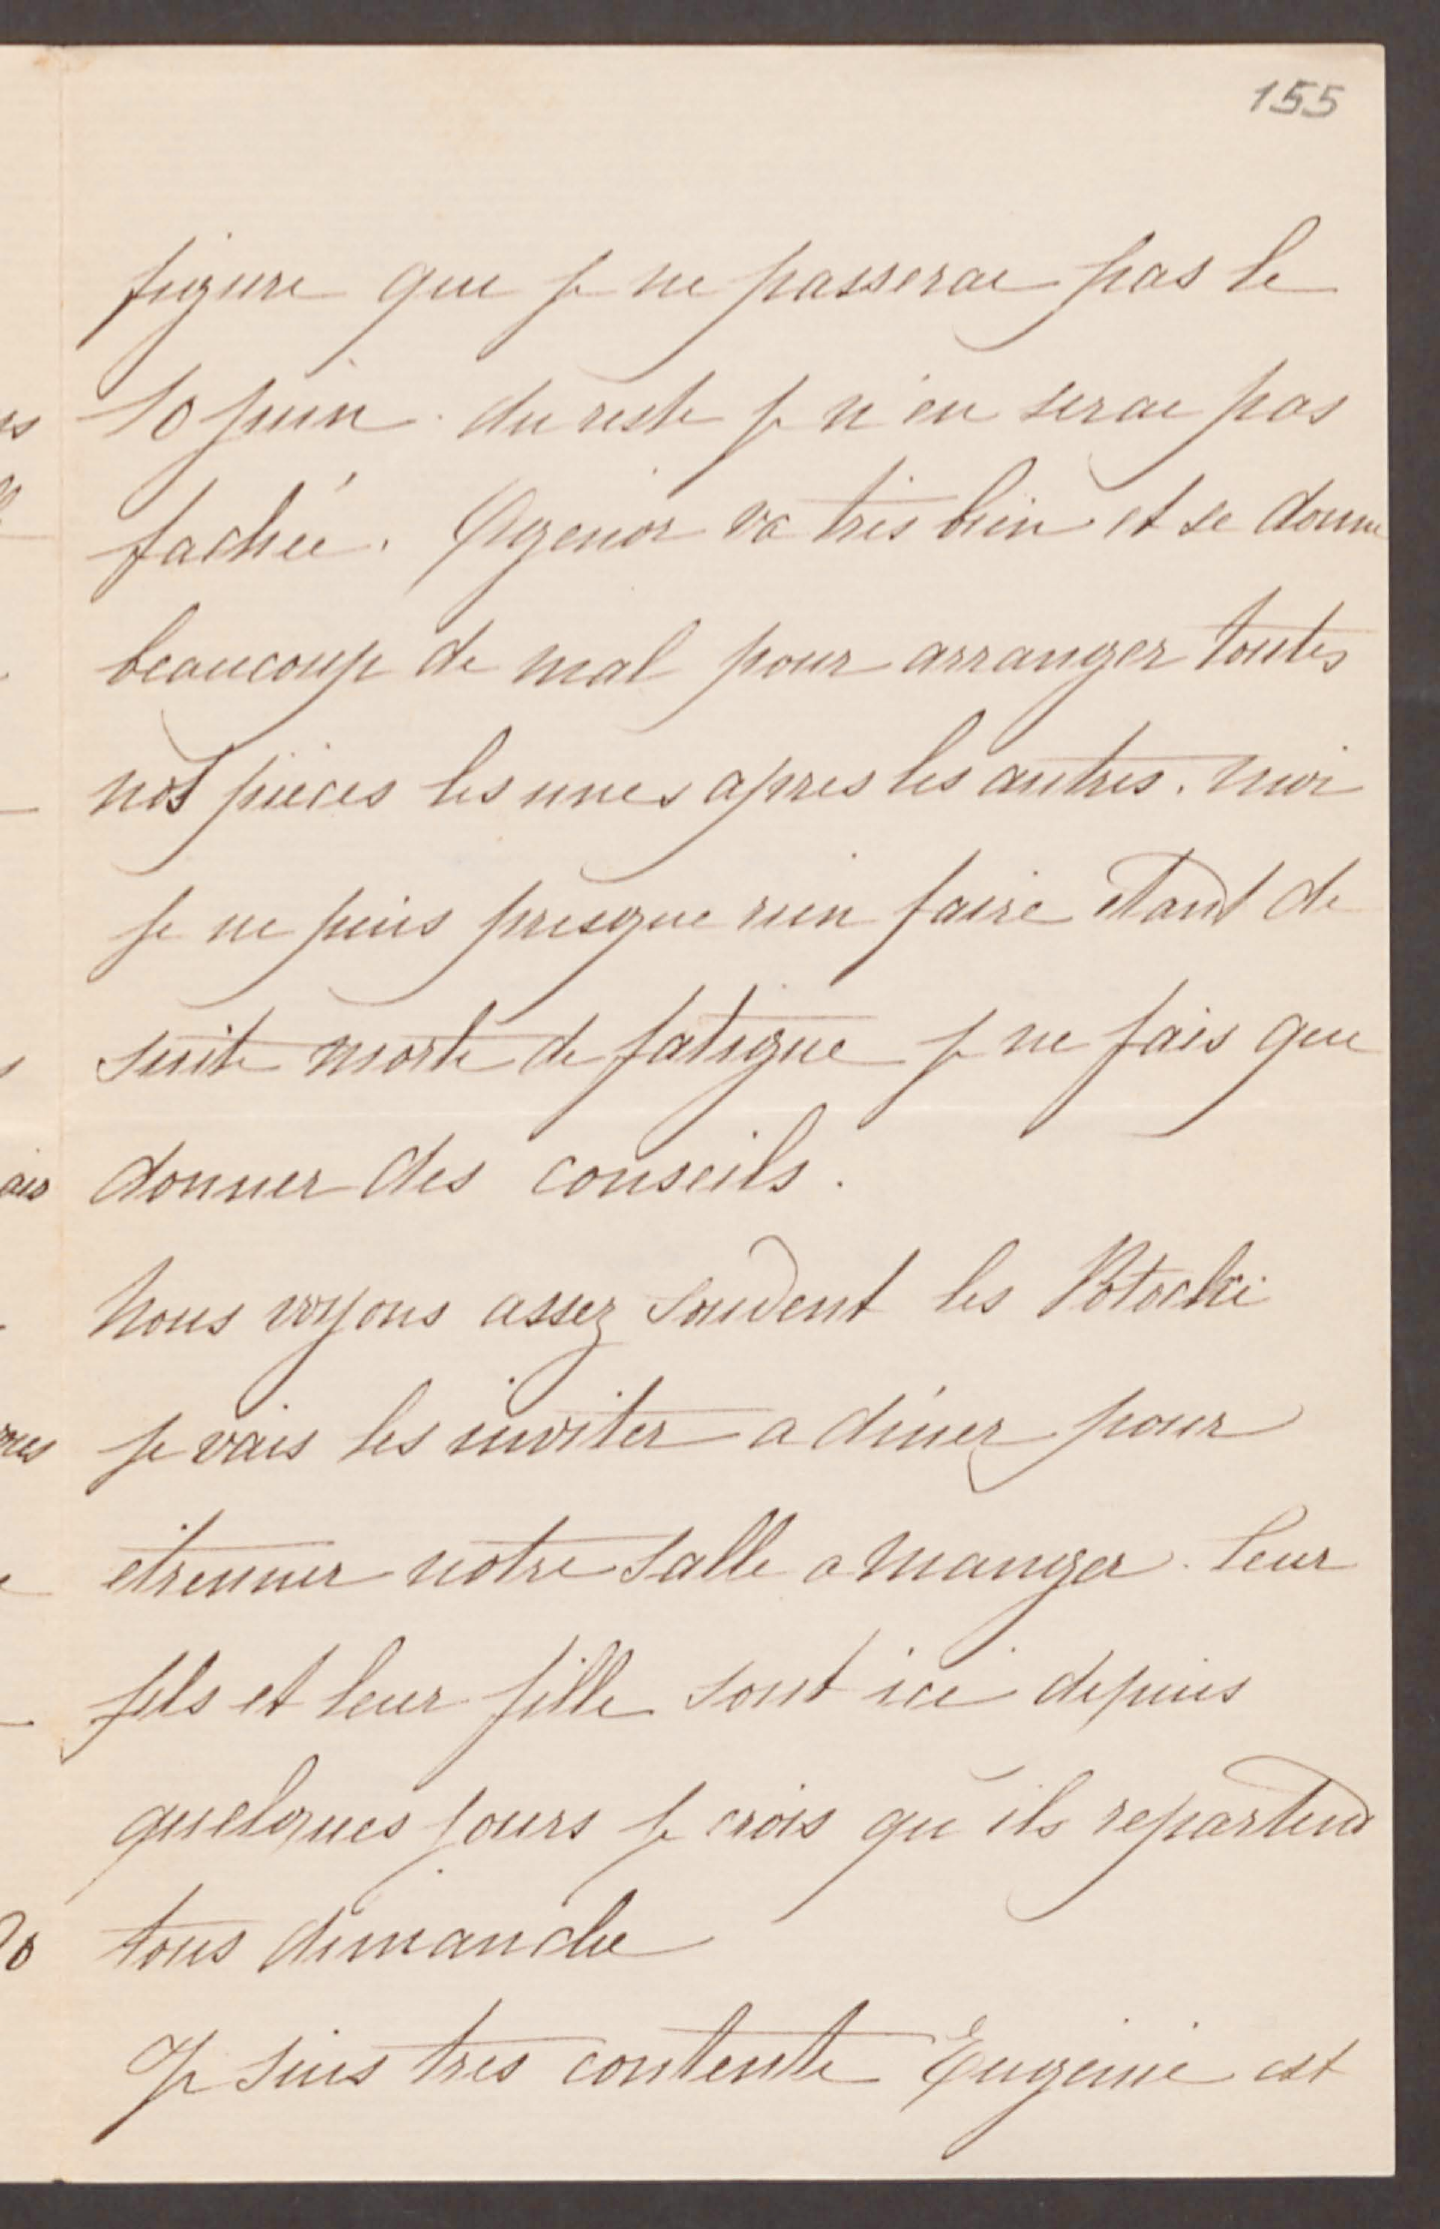 155
figure que je ne passerai pas le
10 juin. du reste je n'en serai pas
fachée. Agenor va très bien et se donne
beaucoup de mal pour arranger toutes
nos pièces les unes apres les autres. moi
je ne puis presque rien faire étant de
suite morte de fatigue je ne fais que
donner des conseils.
Nous voyons assez souvent les Potocki
je vais les inviter a diner pour
étrenner notre salle a manger. leur
fils et leur fille sont ici depuis
quelques jours je crois qu'ils repartent
tous dimanche
Je suis tres contente Eugenie est